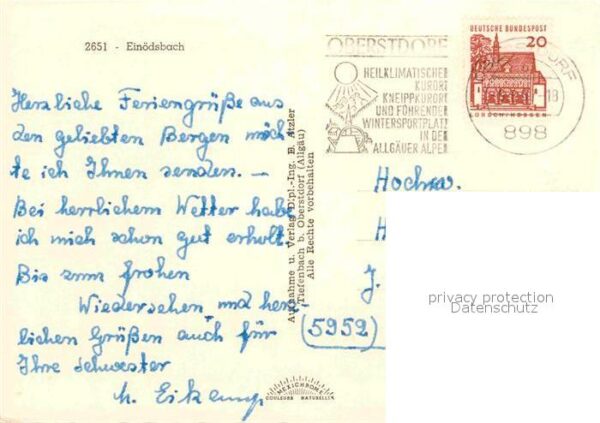 2651 - Einödsbach
Herzliche Feriengrüße aus
den geliebten Bergen möch
te ich Ihnen senden. —
Bei herrlichem Wetter habe
ich mich schon gut erholt.
Bis zum frohen
Wiedersehen und herz-
lichen Grüßen auch für
Ihre Schwester
h. Eikamp
Aufnahme u. Verlag Dipl.-Ing. E. Atzler
Tiefenbach b. Oberstdorf (Allgäu)
Alle Rechte vorbehalten
MEXICHROME
COULEURS NATURELLES
OBERSTDORF
HEILKLIMATISCHER
KURORT
KNEIPPKURORT
UND FÜHRENDER
WINTERSPORTPLATZ
IN DEN
ALLGÄUER ALPEN
DEUTSCHE BUNDESPOST
20
LORSCH/HESSEN
DORF
18
898
Hochw.
H
J.
(5952)
privacy protection
Datenschutz